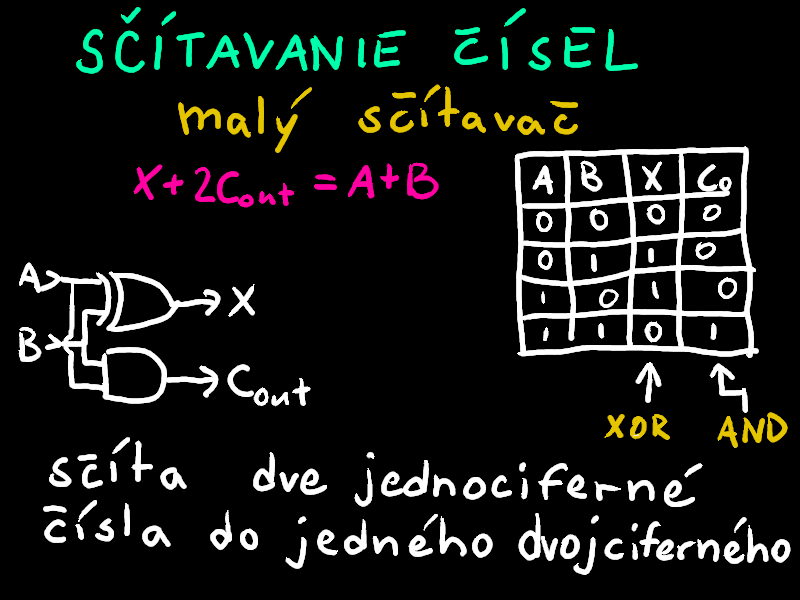 SČÍTAVANIE ČÍSEL
malý sčítavač
X+2Cout=A+B
A B X Co
0 0 0 0
0 1 1 0
1 0 1 0
1 1 0 1
XOR AND
A X
B Cout
sčíta dve jednociferné
čísla do jedného dvojciferného